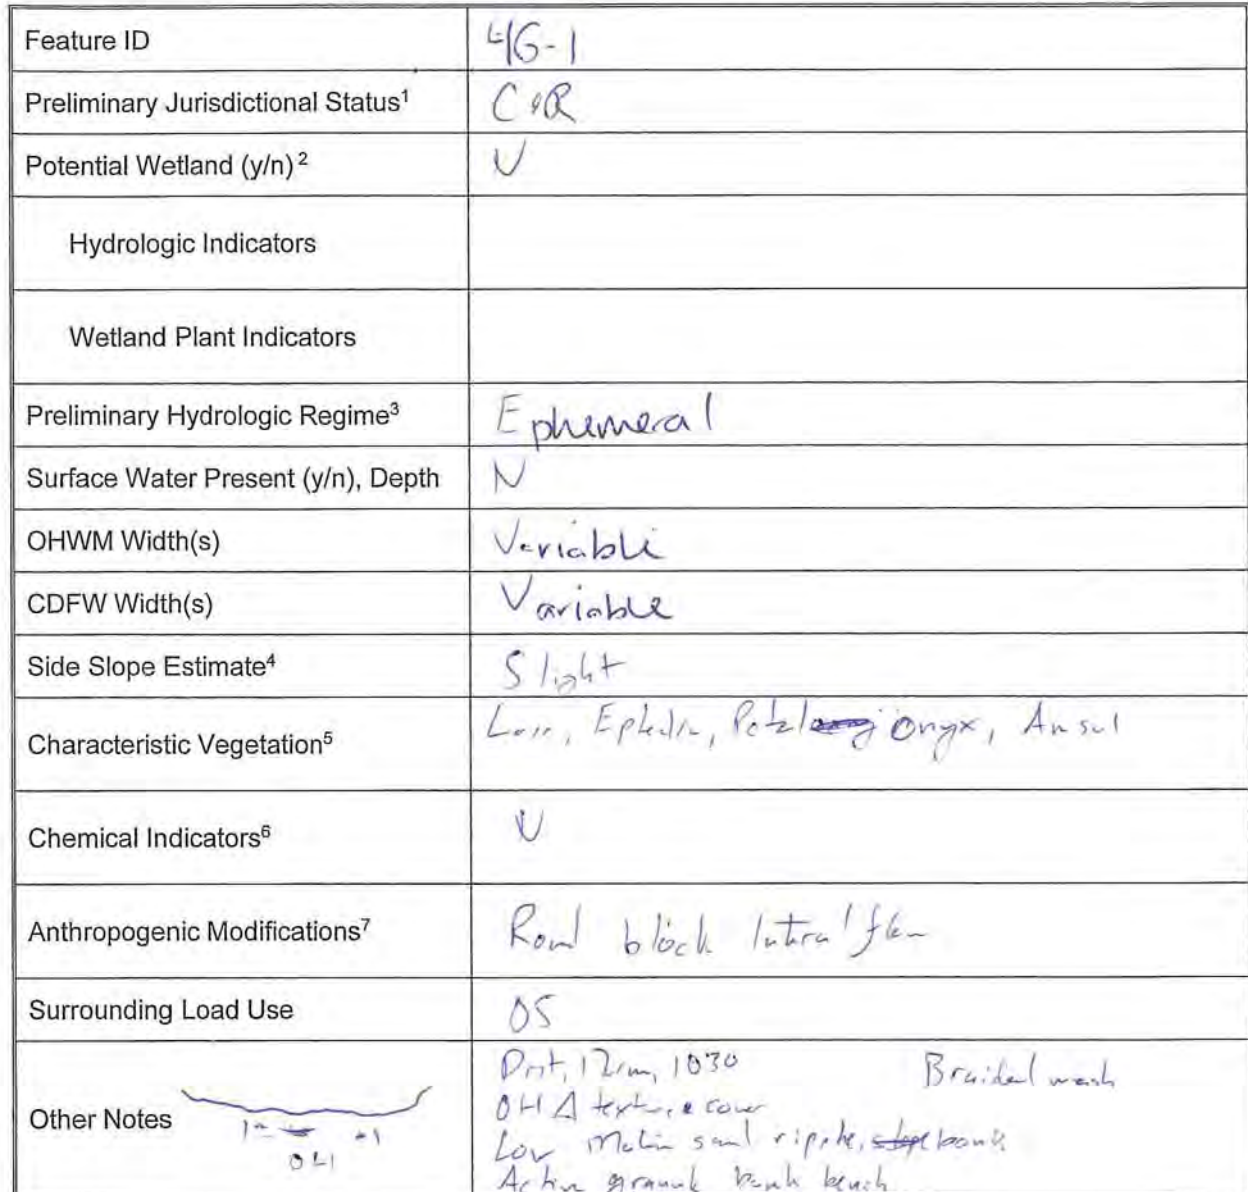 Feature ID 4G-1
Preliminary Jurisdictional Status¹
Potential Wetland (y/n)² N
Hydrologic Indicators
Wetland Plant Indicators
Preliminary Hydrologic Regime³ Ephemeral
Surface Water Present (y/n), Depth N
OHWM Width(s) Variable
CDFW Width(s) Variable
Side Slope Estimate⁴ Slight
Characteristic Vegetation⁵ onyx,
Chemical Indicators⁶ N
Anthropogenic Modifications⁷ block
Surrounding Load Use OS
Other Notes 1030 Braided wash
OH Δ texture cover
Low bank
Active bank bench